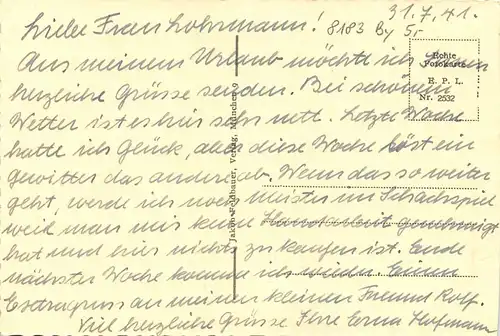 31.7.41.
8183 By 5,-
Liebe Frau Lohrmann!
Echte
Fotokarte
E. P. L.
Nr. 2532
Aus meinem Urlaub möchte ich Ihnen
herzliche Grüsse senden. Bei schönem
Wetter ist es hier sehr nett. Letzte Woche
hatte ich Glück, aber diese Woche löst ein
Gewitter das andere ab. Wenn das so weiter
geht, werde ich noch Meister im Schachspiel
weil man mir keine Handarbeit genehmigt
hat und hier nichts zu kaufen ist. Ende
nächster Woche komme ich wieder. Einen
Extragruss an meinen kleinen Freund Rolf.
Viel herzliche Grüsse Ihre Erna Hofmann
Jakob Feldbauer, Verlag, München 9